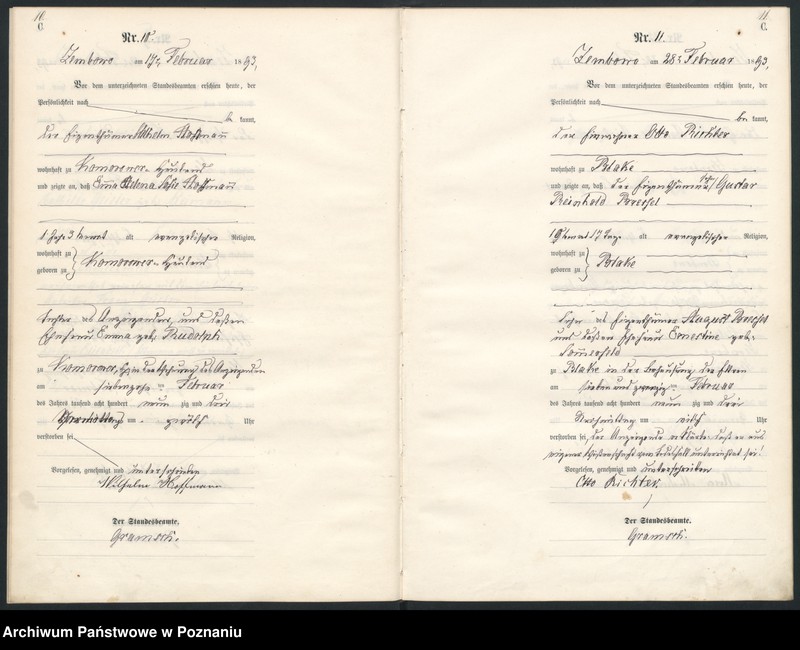 10.
C.
Nr. 10.
Zembowo am 17ten Februar 1893.
Vor dem unterzeichneten Standesbeamten erschien heute, der
Persönlichkeit nach
be kannt,
der Eigenthümer Wilhelm
wohnhaft zu Komorower-Hauland
und zeigte an, daß Emma
1 Jahr 3 Monat alt evangelischer Religion,
wohnhaft zu
geboren zu Komorower-Hauland
Tochter des Anzeigenden, und dessen
Ehefrau Emma geb. Rudolph
zu Komorower des Anzeigenden
am siebenzehn ten Februar
des Jahres tausend acht hundert neun zig und drei
Vormittags um zwölf Uhr
verstorben sei
Vorgelesen, genehmigt und unterschrieben
Wilhelm Hoffmann
Der Standesbeamte.
Gramsch.
11.
C.
Nr. 11.
Zembowo am 28ten Februar 1893.
Vor dem unterzeichneten Standesbeamten erschien heute, der
Persönlichkeit nach
be kannt,
der Einwohner Otto Richter
wohnhaft zu Blake
und zeigte an, daß der Eigenthümer Gustav
Reinhold
17 Tage alt evangelischer Religion,
wohnhaft zu
geboren zu Blake
Sohn des Eigenthümer August
und dessen Ehefrau Ernestine geb.
Sommerfeld
zu Blake in der Behausung der Eltern
am sieben und zwanzig ten Februar
des Jahres tausend acht hundert neun zig und drei
Nachmittag um Uhr
verstorben sei, der Anzeigende erklärte daß er aus
eigener Wissenschaft vom Todesfall unterrichtet sei!
Vorgelesen, genehmigt und unterschrieben
Otto Richter.
Der Standesbeamte.
Gramsch.
Archiwum Państwowe w Poznaniu